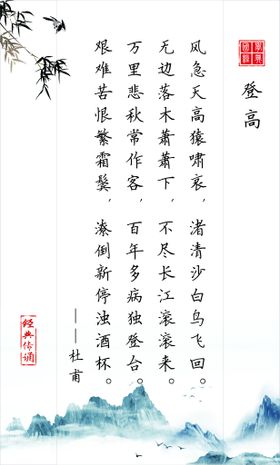 登高
风急天高猿啸哀，渚清沙白鸟飞回。
无边落木萧萧下，不尽长江滚滚来。
万里悲秋常作客，百年多病独登台。
艰难苦恨繁霜鬓，潦倒新停浊酒杯。
——杜甫
经典传诵